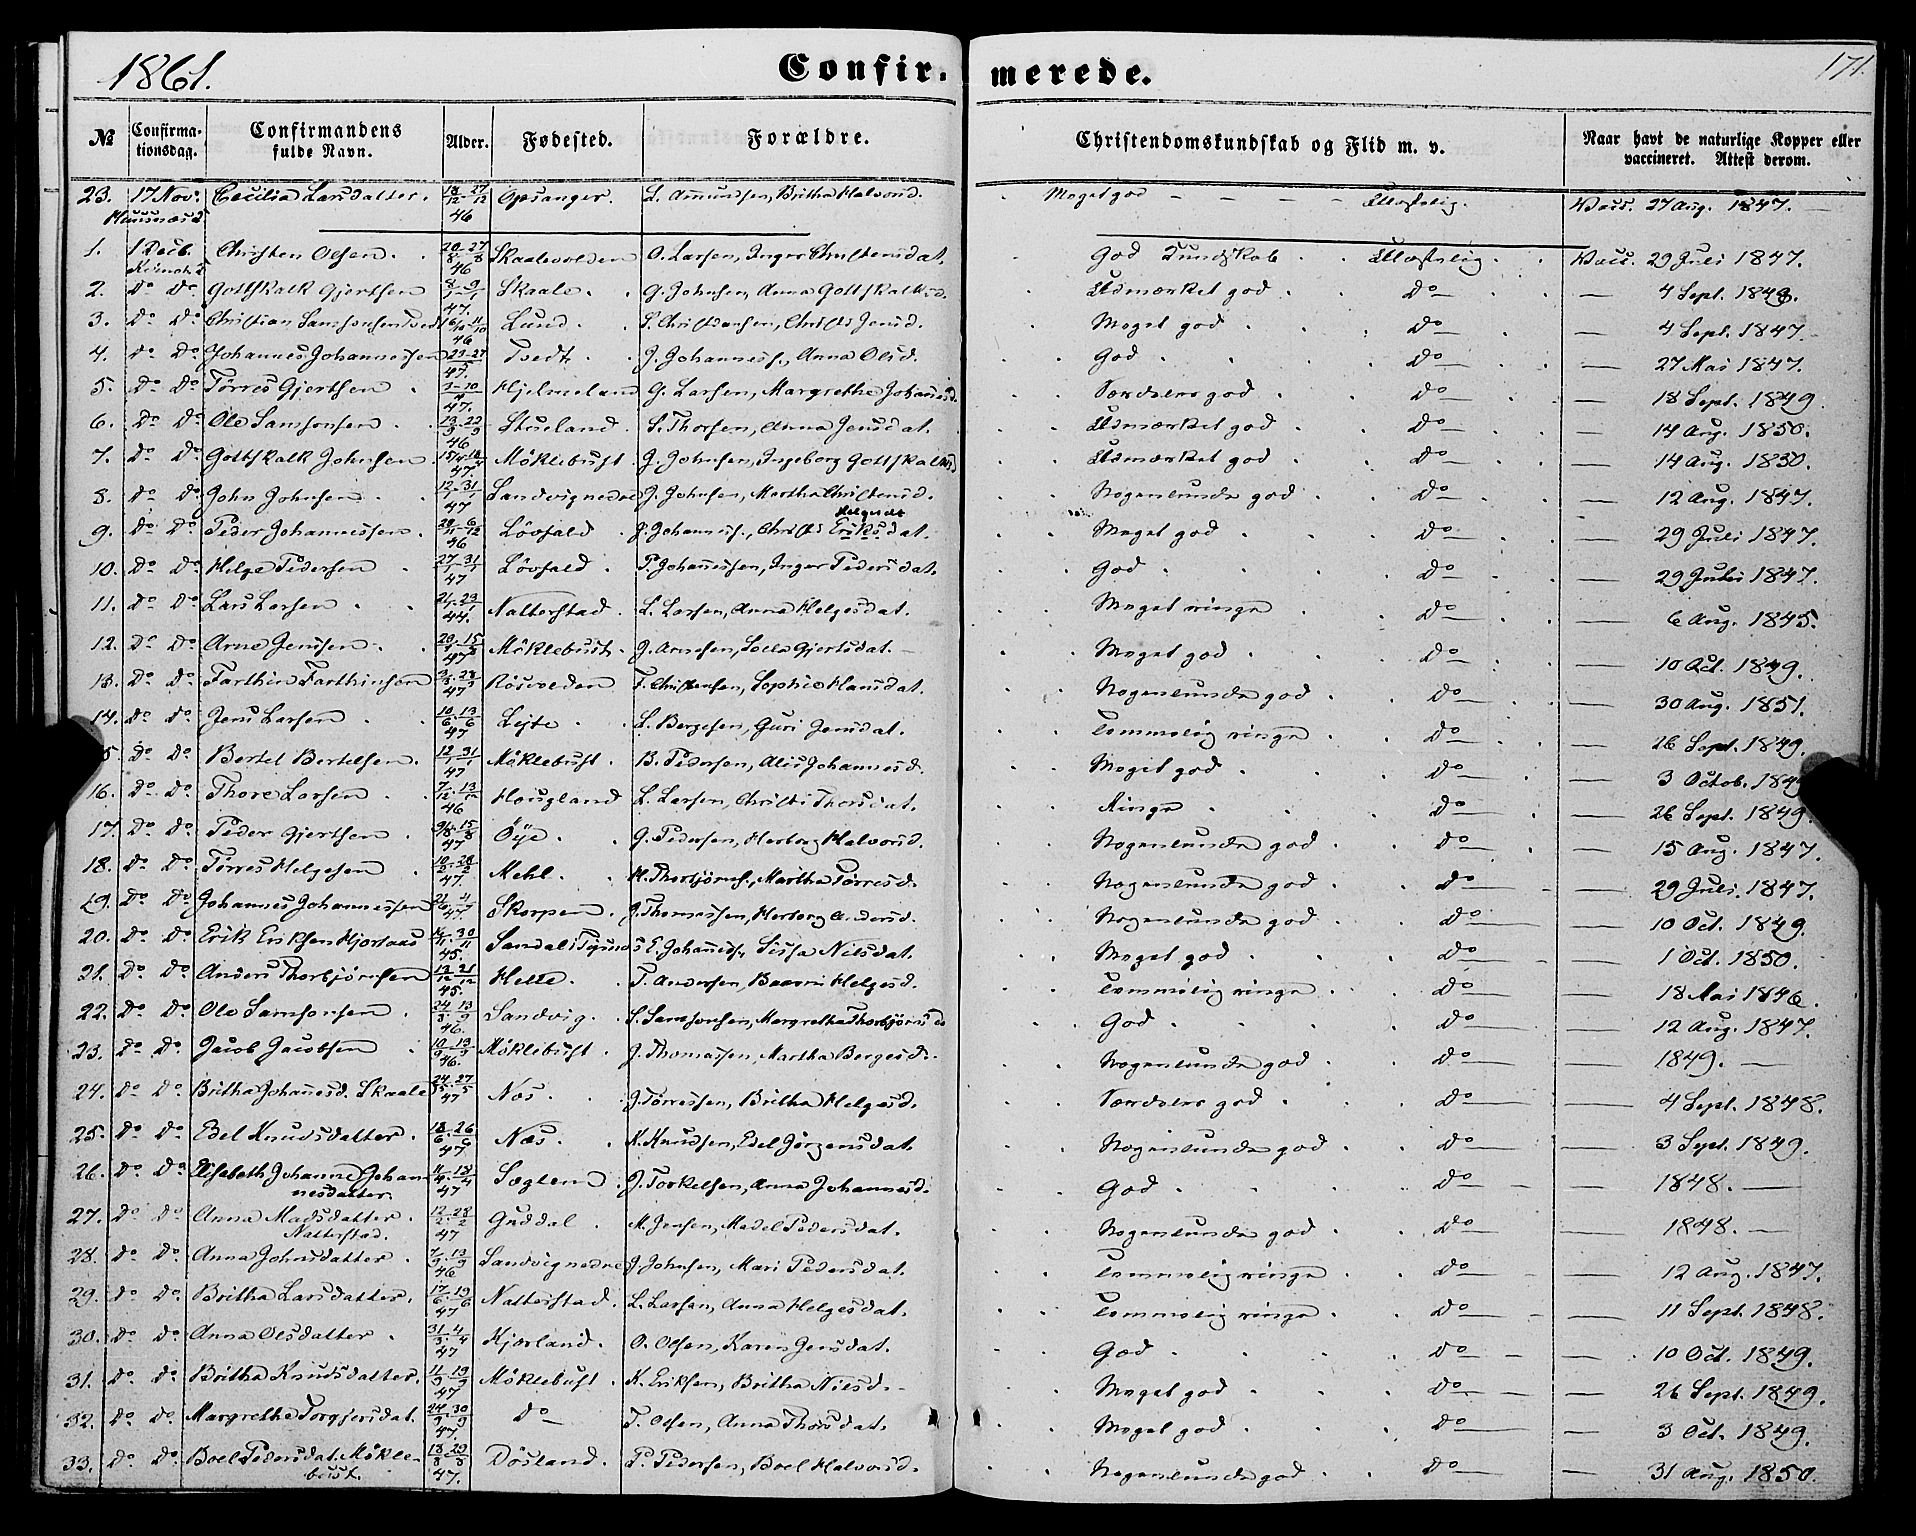 1861. Confir- merede. 171.
№ Confirmationsdag. Confirmandens fulde Navn. Alder. Fødested. Forældre. Christendomskundskab og Flid m. v. Naar havt de naturlige Kopper eller vaccineret. Attest derom.
23. 17 Nov. Cecilia Larsdatter. 18/12 - 27/12 46 Opsanger. L. Amundsen, Britha Halvorsd. Meget god - - - - Vacc. 27 Aug. 1847. -
1. 1 Decb. Christen Olsen. 20/8 - 27/8 46 Skaalevolden O. Larsen, Inger Christensdat. God Kundskab Vacc. 29 Juli 1847.
2. Do Do Gottskalk Gjertsen 47. Skaale. G. Johnsen, Anna Gottskalksd. Udmærket god Do - 4 Sept. 1849.
3. Do Do Christian Samsonsen Tvedt 46 Lund. S. Christensen, Christi Jensd. Meget god Do - 4 Sept. 1847.
4. Do Do Johannes Johannessen 47. Tvedt. J. Johanness., Anna Olsd. God Do - 27 Mai 1847.
5. Do Do Tørres Gjertsen 47. Hjelmeland G. Larsen, Margrethe Johannesd. Særdeles god Do - 18 Sept. 1849.
6. Do Do Ole Samsonsen 46 Stueland. S. Thorsen, Anna Jensdat. Udmærket god Do - 14 Aug. 1850.
7. Do Do Gottskalk Johnsen 47. Möklebust. J. Johnsen, Ingeborg Gottskalksd Udmærket god Do - 14 Aug. 1850.
8. Do Do John Johnsen 12/1 - 31/1 47 Sandvig nedre J. Johnsen, Martha Christensd. Nogenlunde god Do - 12 Aug. 1847.
Helgesdt
9. Do Do Peder Johannessen. 46 Lövfald J. Johanness., Christi Eriksdat. Meget god Do - 29 Juli 1847.
10. Do Do Helge Pedersen 27/1 31/1 47 Lövfald. P. Johannessen, Inger Pedersdat. God Do - 29 Juli 1847.
11. Do Do Lars Larsen 44. Natterstad. L. Larsen, Anna Helgesdat. Meget ringe Do - 6 Aug. 1845.
12. Do Do Arne Jensen 47 Möklebust. J. Arnesen, Gjertsdat. - Meget god Do - 10 Oct. 1849.
13. Do Do Farthin Farthinsen 47 Rösvolden F. Christensen, Sophie Hansdat. Nogenlunde god Do - 30 Aug. 1851.
14. Do Do Jens Larsen 10/6 - 13/6 47 Lejte L. Bergesen, Guri Jensdat. Temmelig ringe Do - 26 Sept. 1849.
5. Do Do Bertel Bertelsen. 12/1 - 31/1 47 Möklebust. B. Pedersen, Alis Johannesd. Meget god Do - 3 Octob. 1849
16. Do Do Thore Larsen 7/12 - 13/12 46 Hougland L. Larsen, Christi Thorsdat. Ringe Do - 26 Sept. 1849.
17. Do Do Peder Gjertsen 47 Öye. G. Pedersen, Herborg Halvorsd. Nogenlunde god Do - 15 Aug. 1847.
18. Do Do Tørres Helgesen 10/2 - 28/2 47. Mehl. H. Thorbjörns., Martha Tørresd. Nogenlunde god Do - 29 Juli 1847.
19. Do Do Johannes Johannessen 47. Skorpen. J. Thomassen, Herborg Andersd. Nogenlunde god Do - 10 Oct. 1849.
20. Do Do Erik Eriksen Hjortaas 45. E. Johanness., Sissa Nilsdat. Meget god Do - 1 Oct. 1850.
21. Do Do Anders Thorbjörnsen 45. Helle. T. Andersen, Helgesd. Temmelig ringe Do - 18 Mai 1846.
22. Do Do Ole Samsonsen 46. Sandvig. S. Samsonsen, Margretha Thorbjörnsd. God Do - 12 Aug. 1847.
23. Do Do Jacob Jacobsen 46. Möklebust. J. Thomassen, Martha Bergesd. Nogenlunde god Do - 1849. -
24. Do Do Britha Johannesd. Skaale 24/5 - 27/5 47 Næs. J. Tørressen, Britha Helgesd. Særdeles god Do - 4 Sept. 1848.
25. Do Do Edel Knudsdatter. 18/6 - 26/6 47. Næs. K. Knudsen, Edel Jörgensdat. Nogenlunde god Do - 3 Sept. 1849.
26. Do Do Elisabeth Johanne Johan- 47 J. Torkelsen, Anna Johannesd. God Do - 1848. -
nesdatter.
27. Do Do Anna Madsdatter. 12/2 - 28/2 47 Guddal. M. Jensen, Madel Pedersdat. Nogenlunde god Do - 1848. -
Natterstad.
28. Do Do Anna Johnsdatter 7/9 - 13/9 46 Sandvig nedre J. Johnsen, Mari Pedersdat. Temmelig ringe Do - 12 Aug. 1847.
29. Do Do Britha Larsdatter. 17/6 - 19/6 47 Natterstad. L. Larsen, Anna Helgesdat. Temmelig ringe Do - 11 Sept. 1848.
30. Do Do Anna Olsdatter 47 Kjærland. O. Olsen, Karen Jensdat. God Do - 10 Oct. 1849.
31. Do Do Britha Knudsdatter. 47 Möklebust. K. Eriksen, Britha Nilsd. Meget god Do - 26 Sept. 1849.
32. Do Do Margrethe Torgjersdat. 24/9 - 30/9 47. Do T. Olsen, Anna Thorsdat. Meget god Do - 3 Oct. 1849.
33. Do Do Boel Pedersdat. Mökle- 47. Dösland. P. Pedersen, Boel Halvorsd. Nogenlunde god Do - 31 Aug. 1850.
bust.